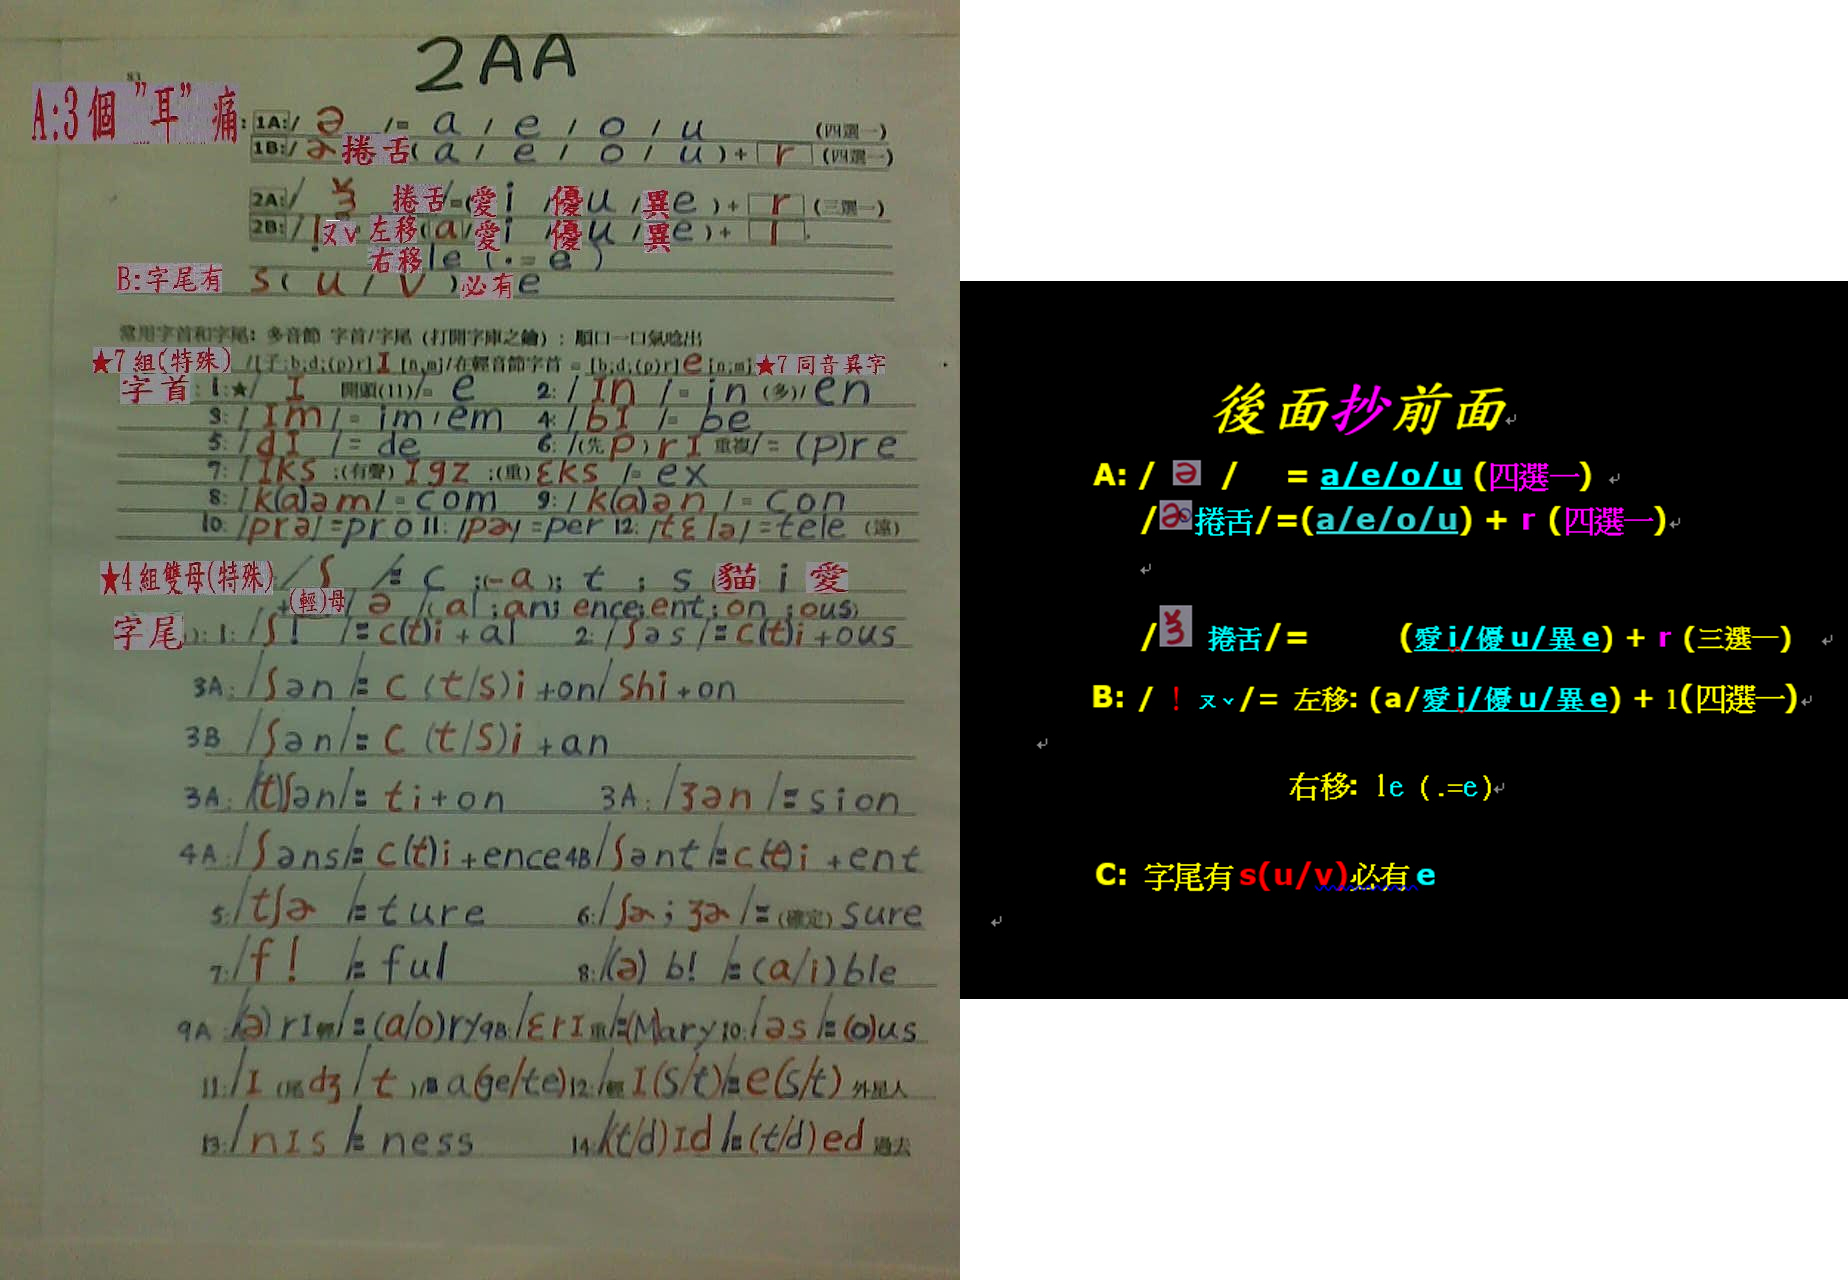 2AA
83
A:3個"耳"痛: 1A:/ ə /= a / e / o / u (四選一)
1B:/ ɚ 捲舌( a / e / o / u ) + r (四選一)
2A:/ ɝ 捲舌/=(愛i /優u /異e ) + r (三選一)
2B:/ ! ㄡˇ 左移(a/愛i /優u /異e ) + l
右移 le ( . = e )
B:字尾有 s( u / v )必有e
常用字首和字尾: 多音節 字首/字尾 (打開字庫之鑰) : 順口一口氣唸出
★7組(特殊) /[子:b;d;(p)r] I [n,m]/在輕音節字首 = [b;d;(p)r] e [n;m] ★7同音異字
字首: 1:★/ I 開頭(11)/= e 2: / In /= in (多)/ en
3: / Im /= im / em 4: / bI /= be
5: / dI /= de 6: /(先 p ) r I 重複/= (p)re
7: / Iks :(有聲) Igz :(重) ɛks /= ex
8: / k(a)əm /= com 9: / k(a)ən /= con
10: /prə/ = pro 11: /pɚ/ = per 12: /tɛlə/ = tele (遠)
★4組雙母(特殊) / ʃ /= c ;(-a ); t ; s (貓 i 愛
+(輕)母/ ə /( al ; an; ence; ent ; on ; ous)
字尾): 1: / ʃ! /= c(t)i + al 2: / ʃəs /= c(t)i + ous
3A: / ʃən /= c (t/s)i +on/ shi + on
3B / ʃən /= c (t/s)i + an
3A: /(t)ʃən/= ti + on 3A: / ʒən /= sion
4A: / ʃəns /= c(t)i + ence 4B / ʃənt /= c(t)i + ent
5: / tʃɚ /= ture 6: / ʃɚ ; ʒɚ /= (確定) sure
7: / f! /= ful 8: /(ə) b! /= (a/i) ble
9A: /(ə) rI輕/= (a/o)ry 9B: /ɛrI重/=(Mary 10: / əs /= (o)us
11: / I (尾 dʒ / t )/= a(ge/te) 12: /輕 I(s/t)/= e(s/t) 外星人
13: / nIs /= ness 14: /(t/d)Id /= (t/d) ed 過去
後面抄前面
A: / ə / = a/e/o/u (四選一)
/ ɚ 捲舌/=(a/e/o/u) + r (四選一)
/ ɝ 捲舌/= (愛i/優u/異e) + r (三選一)
B: / ! ㄡˇ/= 左移: (a/愛i/優u/異e) + l(四選一)
右移: le (.=e)
C: 字尾有s(u/v)必有e